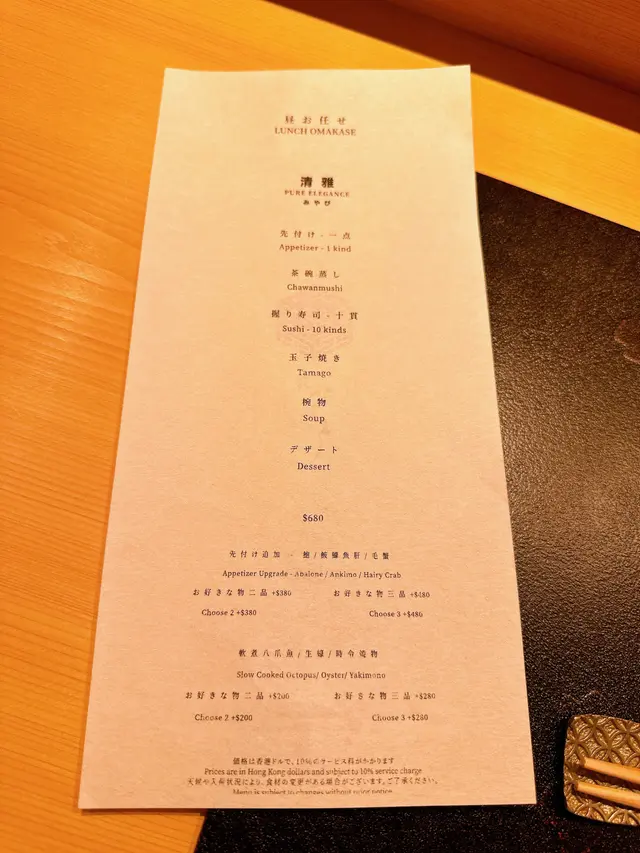 昼お任せ
LUNCH OMAKASE
清雅
PURE ELEGANCE
みやび
先付け - 一点
Appetizer - 1 kind
茶碗蒸し
Chawanmushi
握り寿司 - 十貫
Sushi - 10 kinds
玉子焼き
Tamago
椀物
Soup
デザート
Dessert
$680
先付け追加 - 鮑/鮟鱇魚肝/毛蟹
Appetizer Upgrade - Abalone / Ankimo / Hairy Crab
お好きな物二品 +$380 お好きな物三品 +$480
Choose 2 +$380 Choose 3 +$480
軟煮八爪魚/生蠔/時令焼物
Slow Cooked Octopus/ Oyster/ Yakimono
お好きな物二品 +$200 お好きな物三品 +$280
Choose 2 +$200 Choose 3 +$280
価格は香港ドルで、10%のサービス料がかかります
Prices are in Hong Kong dollars and subject to 10% service charge
天候や入荷状況により、食材の変更がある場合がございます。ご了承ください。
Menu is subject to changes without prior notice